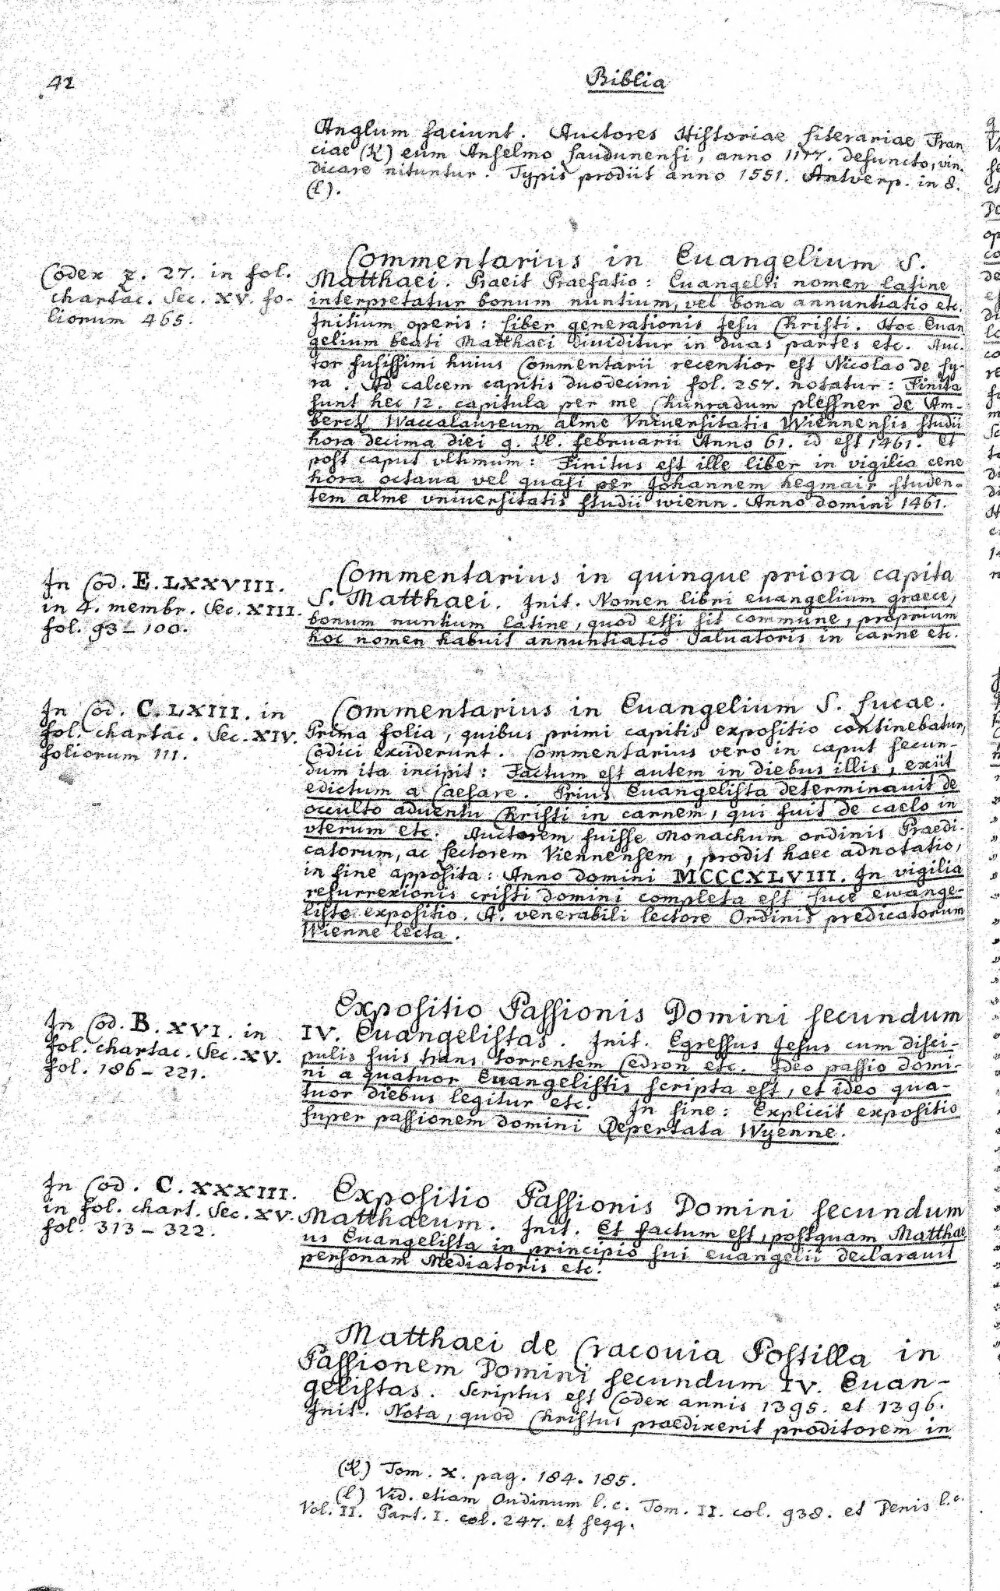 42
Biblia
Anglum faciunt. Auctores Historiae Literariae Fran
ciae (K) eum Anselmo Laudunensi, anno 1117. defuncto, vin-
dicare nituntur. Typis prodiit anno 1551. Antverp. in 8.
(l).
Codex Z. 27. in fol.
chartac. Sec. XV. fo-
liorum 465.
Commentarius in Euangelium S.
Matthaei. Praeit Praefatio: Euangelii nomen latine
interpretatur bonum nuntium, vel bona annuntiatio etc.
Initium operis: Liber generationis Jesu Christi. Hoc Euan
gelium beati Matthaei diuiditur in duas partes etc. Auc-
tor fusissimi huius Commentarii recentior est Nicolao de Ly-
ra. Ad calcem capitis duodecimi fol. 257. notatur: Finita
sunt hec 12. capitula per me Chunradum plessner de Am-
berck Waccalaureum alme Vniuersitatis Wiennensis studii
hora decima diei 9. februarii Anno 61. id est 1461. Et
post caput vltimum: Finitus est ille liber in vigilia cene
hora octaua vel quasi per Johannem hegmair studen-
tem alme vniuersitatis studii wienn. Anno domini 1461.
In Cod. E. LXXVIII.
in 4. membr. Sec. XIII.
fol. 93-100.
Commentarius in quinque priora capita
S. Matthaei. Init. Nomen libri euangelium graece,
bonum nuntium latine, quod etsi sit commune, proprium
hoc nomen habuit annuntiatio Saluatoris in carne etc.
In Cod. C. LXIII. in
fol. chartac. Sec. XIV.
foliorum 111.
Commentarius in Euangelium S. Lucae.
Prima folia, quibus primi capitis expositio continebatur,
Codici exciderunt. Commentarius vero in caput secun-
dum ita incipit: Factum est autem in diebus illis, exiit
edictum a Caesare. Prius Euangelista determinauit de
occulto aduentu Christi in carnem, qui fuit de caelo in
vterum etc. Auctorem fuisse Monachum ordinis Praedi-
catorum, ac Lectorem Viennensem, prodit haec adnotatio,
in fine apposita: Anno domini MCCCXLVIII. In vigilia
resurrexionis cristi domini completa est luce ewange-
liste expositio. A. venerabili lectore Ordinis predicatorum
Wienne lecta.
In Cod. B. XVI. in
fol. chartac. Sec. XV.
fol. 186-221.
Expositio Passionis Domini secundum
IV. Euangelistas. Init. Egressus Jesus cum disci-
pulis suis trans torrentem Cedron etc. Ideo passio domi-
ni a quatuor Euangelistis scripta est, et ideo qua-
tuor diebus legitur etc. In fine: Explicit expositio
super passionem domini Repertata Wyenne.
In Cod. C. XXXIII.
in fol. chart. Sec. XV.
fol. 313-322.
Expositio Passionis Domini secundum
Matthaeum. Init. Et factum est, postquam Matthae
us Euangelista in principio sui euangelii declarauit
personam Mediatoris etc.
Matthaei de Cracouia Postilla in
Passionem Domini secundum IV. Euan-
gelistas. Scriptus est Codex annis 1395. et 1396.
Init. Nota, quod Christus praedixerit proditorem in
(K) Tom. X. pag. 184. 185.
(l) Vid. etiam Oudinum l. c. Tom. II. col. 938. et Denis l. c.
Vol. II. Part. I. col. 247. et seqq.